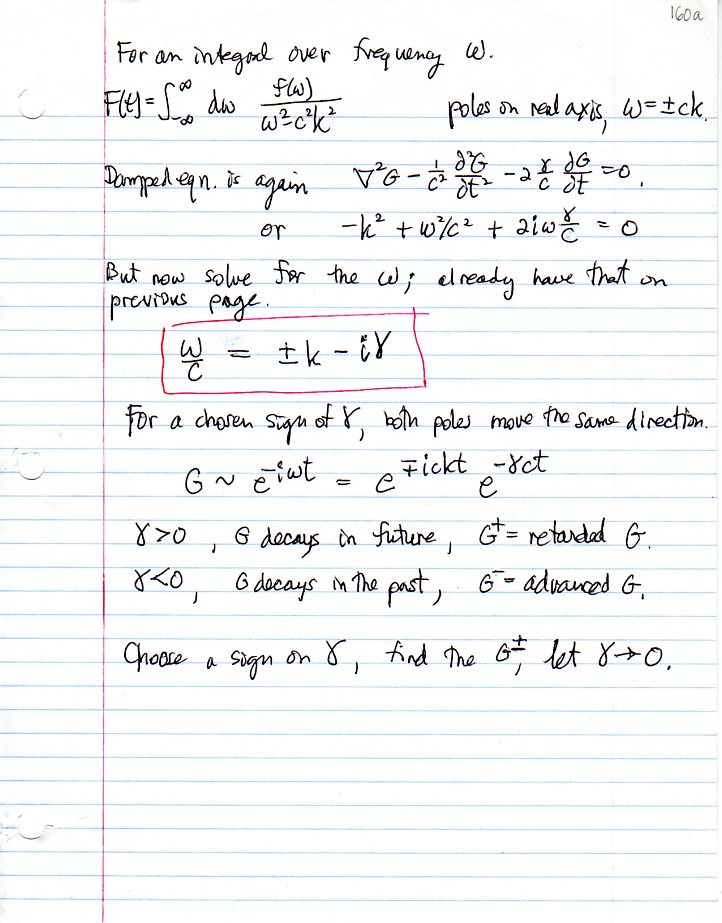 160a
For an integral over frequency ω.
F(t) = ∫_{-∞}^{∞} dω f(ω)/(ω² - c²k²) poles on real axis, ω = ±ck.
Damped eqn. is again ∇²G - 1/c² ∂²G/∂t² - 2 γ/c ∂G/∂t = 0.
or -k² + ω²/c² + 2iω γ/c = 0
But now solve for the ω; already have that on
previous page.
ω/c = ±k - iγ
For a chosen sign of γ, both poles move the same direction.
G ~ e^{-iωt} = e^{∓ickt} e^{-γct}
γ>0, G decays in future, G⁺ = retarded G.
γ<0, G decays in the past, G⁻ = advanced G.
Choose a sign on γ, find the G^±, let γ→0.